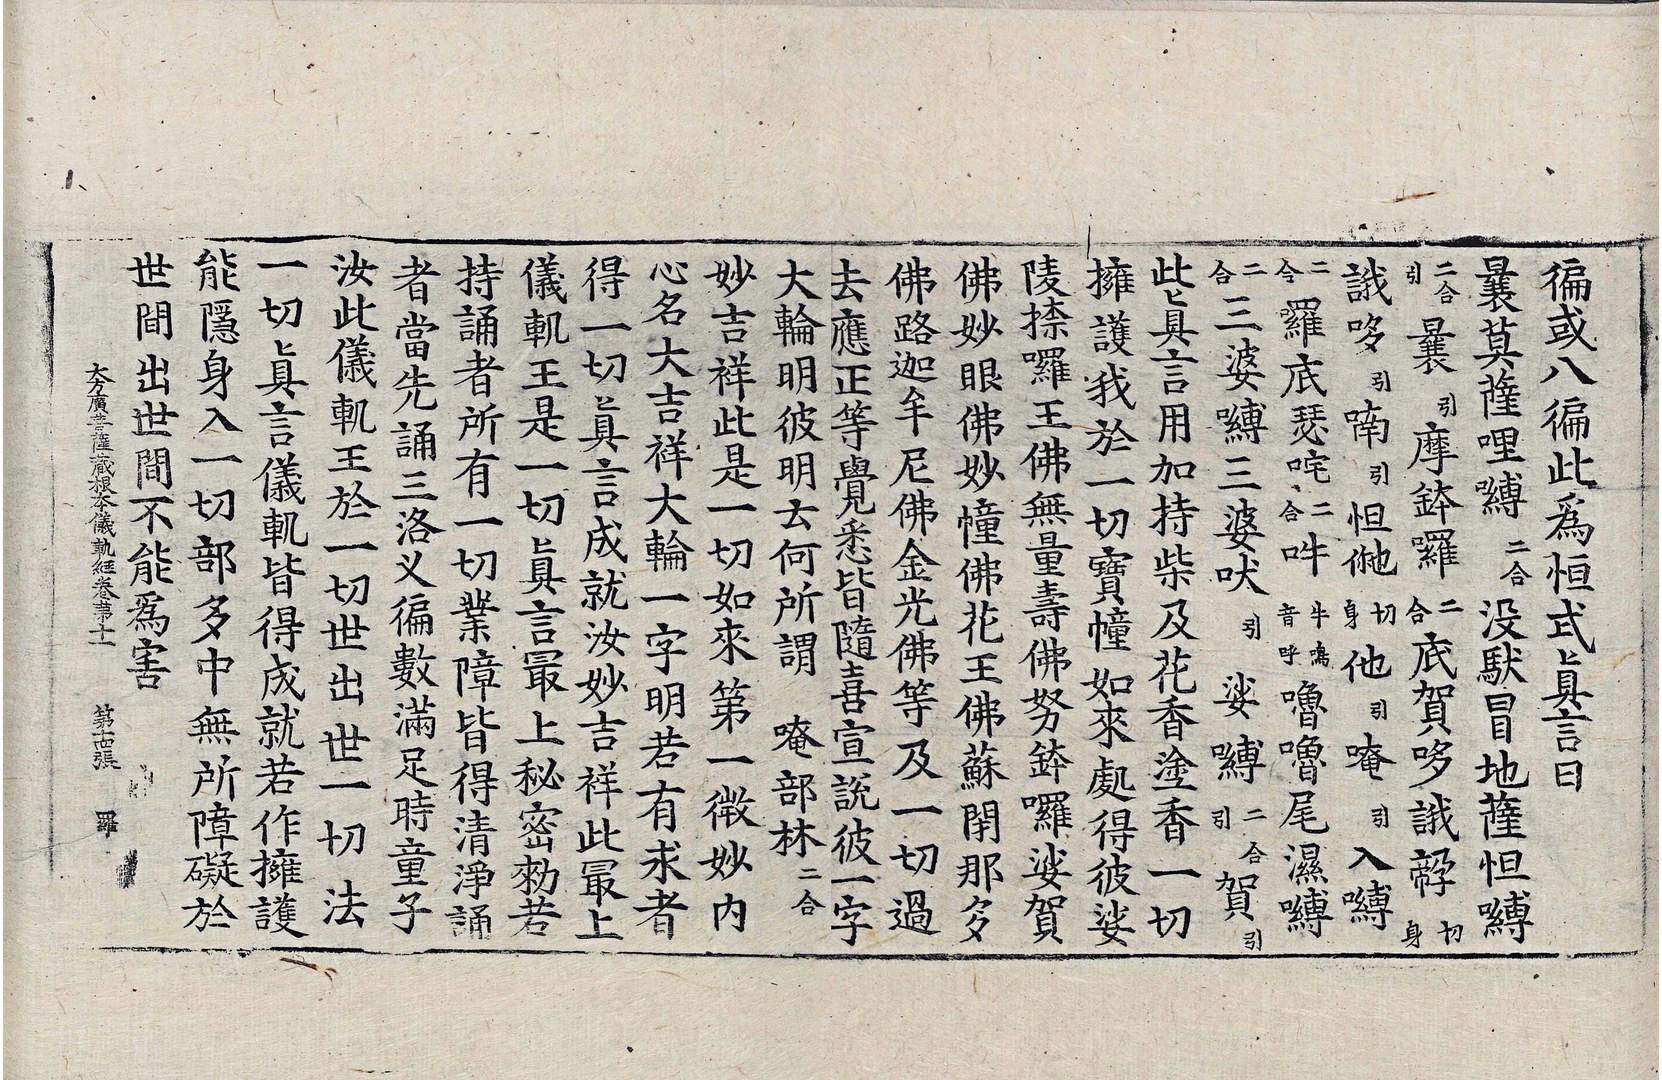 徧或八徧此爲恒式真言曰
曩莫薩哩嚩二合没馱冒地薩怛嚩
二合引曩引摩鉢囉二合底賀哆誐帝切身
誐哆引喃引怛他切身他引唵引入嚩
二合羅底瑟咤二合吽牛鳴音呼嚕嚕尾濕嚩
二合三婆嚩三婆吠引娑嚩二合引賀引
此真言用加持柴及花香塗香一切
擁護我於一切寶幢如來處得彼娑
陵捺囉王佛無量壽佛努鉢囉娑賀
佛妙眼佛妙幢佛花王佛蘇閉那多
佛路迦牟尼佛金光佛等及一切過
去應正等覺悉皆隨喜宣說彼一字
大輪明彼明云何所謂　唵部林二合
妙吉祥此是一切如來第一徵妙内
心名大吉祥大輪一字明若有求者
得一切真言成就汝妙吉祥此冣上
儀軓王是一切真言冣上秘密勑若
持誦者所有一切業障皆得清淨誦
者當先誦三洛义徧數滿足時童子
汝此儀軓王於一切世出世一切法
一切真言儀軓皆得成就若作擁護
能隱身入一切部多中無所障礙於
世間出世間不能爲害
大方廣菩薩藏根本儀軌経卷苐十一　第十四張　羅